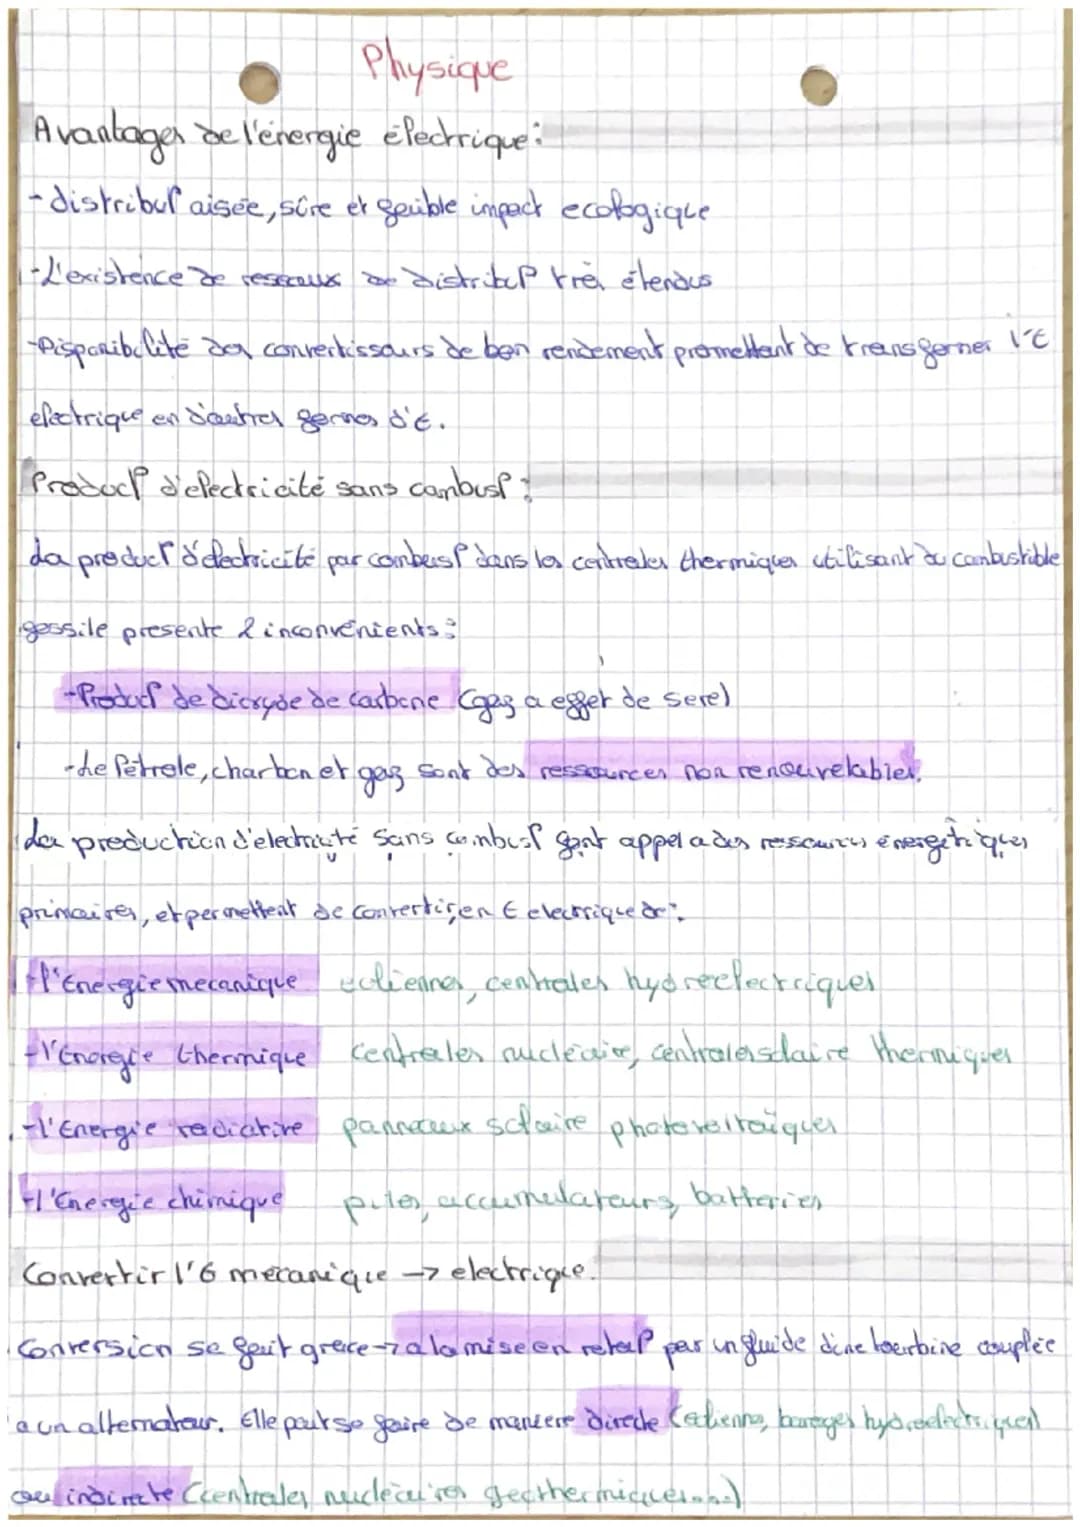 Physique
Avantages de l'énergie électrique:
- distribu° aisée, sûre et faible impact ecologique
- L'existence de reseaux de distribu° très étendus
- Disponibilité des convertisseurs de bon rendement promettant de transformer l'E
electrique en d'autres formes d'E.
Produc° d'electricité sans combus°:
La produc° d'électricité par combus° dans les centrales thermiques utilisant du combustible
fossile presente 2 inconvénients:
- Produc° de dioxyde de carbone (gaz a effet de sere)
- Le Pétrole, charbon et gaz sont des ressources non renouvelables.
Les production d'electricité sans combus° font appel a des ressources énergétiques
primaires, et permettent de convertir, en E electrique de:
- l'Energie mecanique eoliennes, centrales hydroelectriques
- l'Energie thermique centrales nucléaire, centrales solaire thermiques
- l'Energie radiative panneaux solaire photovoltaïques
- l'Energie chimique piles, accumulateurs, batteries
Convertir l'E mecanique → electrique.
Conversion se fait grace → a la mise en rota° par un fluide d'une tourbine couplée
a un alternateur. Elle peut se faire de maniere directe (eolienne, barages hydroelectriques)
ou indirecte (centrales nucléaires geothermiques...)